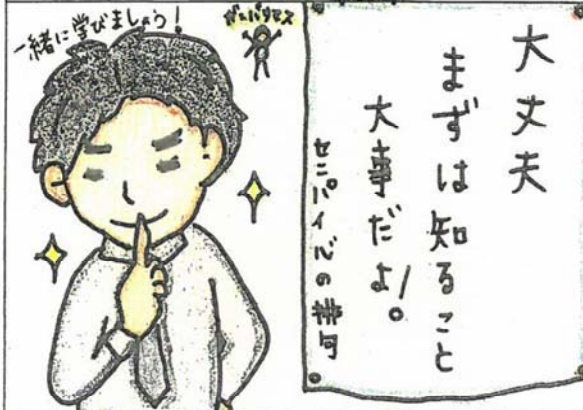 一緒に学びましょう!
ガンバリマス
大丈夫
まずは知ること
大事だよ!。
センパイ心の俳句